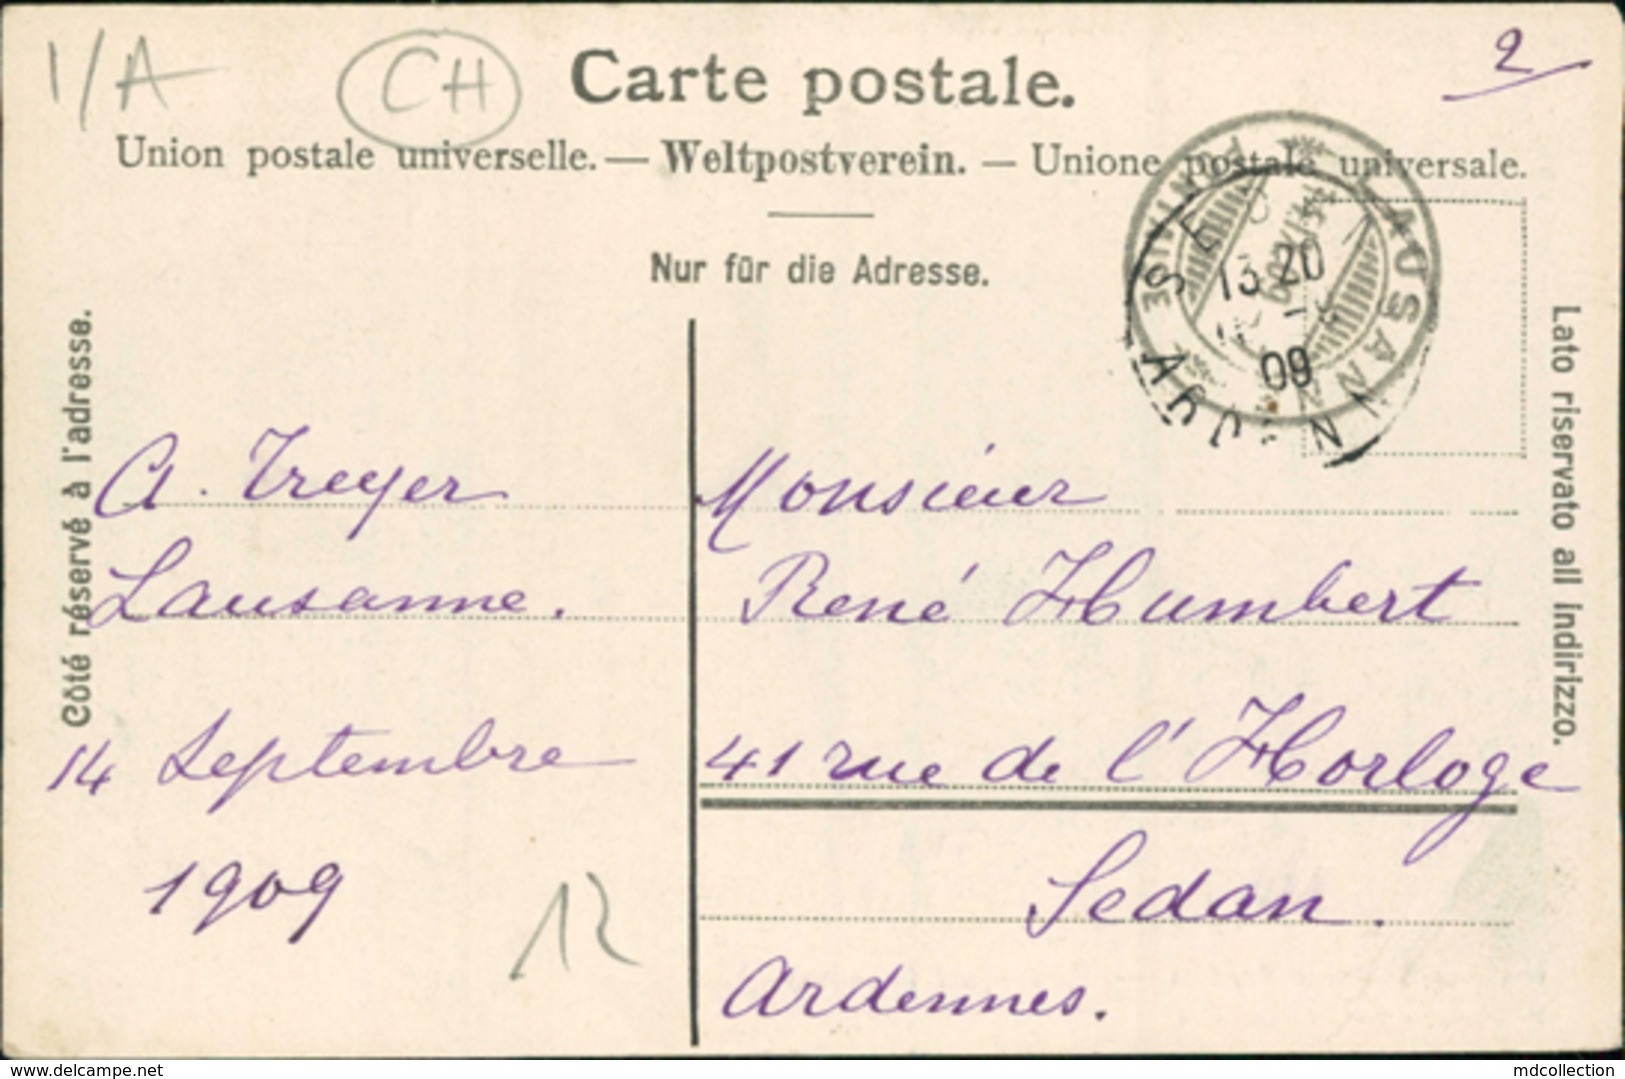 I/A
CH
Carte postale.
2
Union postale universelle. — Weltpostverein. — Unione postale universale.
Nur für die Adresse.
Côté réservé à l'adresse.
Lato riservato all indirizzo.
LAUSANNE
13 20
09
A. Treyer
Lausanne.
14 Septembre
1909
12
Monsieur
René Humbert
41 rue de l'Horloge
Sedan.
Ardennes.
www.delcampe.net
mdcollection